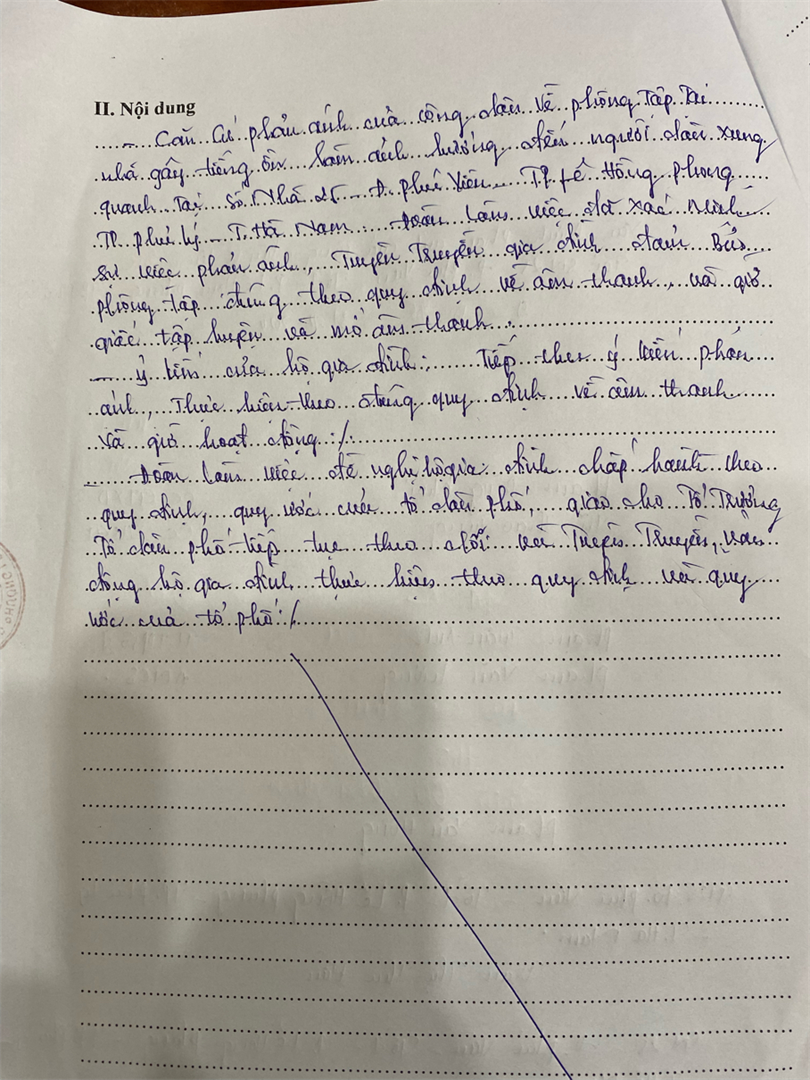 II. Nội dung
- Căn cứ phản ánh của công dân về phòng tập tại
nhà gây tiếng ồn làm ảnh hưởng đến người dân xung
quanh tại số nhà 25 - Đ. phú Viên - TP. Lê Hồng phong
TP phủ lý - T. Hà Nam. Đoàn làm việc đã xác minh
sự việc phản ánh, Tuyên Truyền gia đình đảm Bảo
phòng tập đúng theo quy định về âm thanh, và giờ
giấc tập luyện và mở âm thanh.
- ý kiến của hộ gia đình: Tiếp thu ý kiến phản
ánh, Thực hiện theo đúng quy định về âm thanh
và giờ hoạt động:/.
- Đoàn làm việc đề nghị hộ gia đình chấp hành theo
quy định, quy ước của tổ dân phố, giao cho Tổ Trưởng
Tổ dân phố tiếp tục theo dõi và Tuyên Truyền, vận
động hộ gia đình thực hiện theo quy định và quy
ước của tổ phố:/.